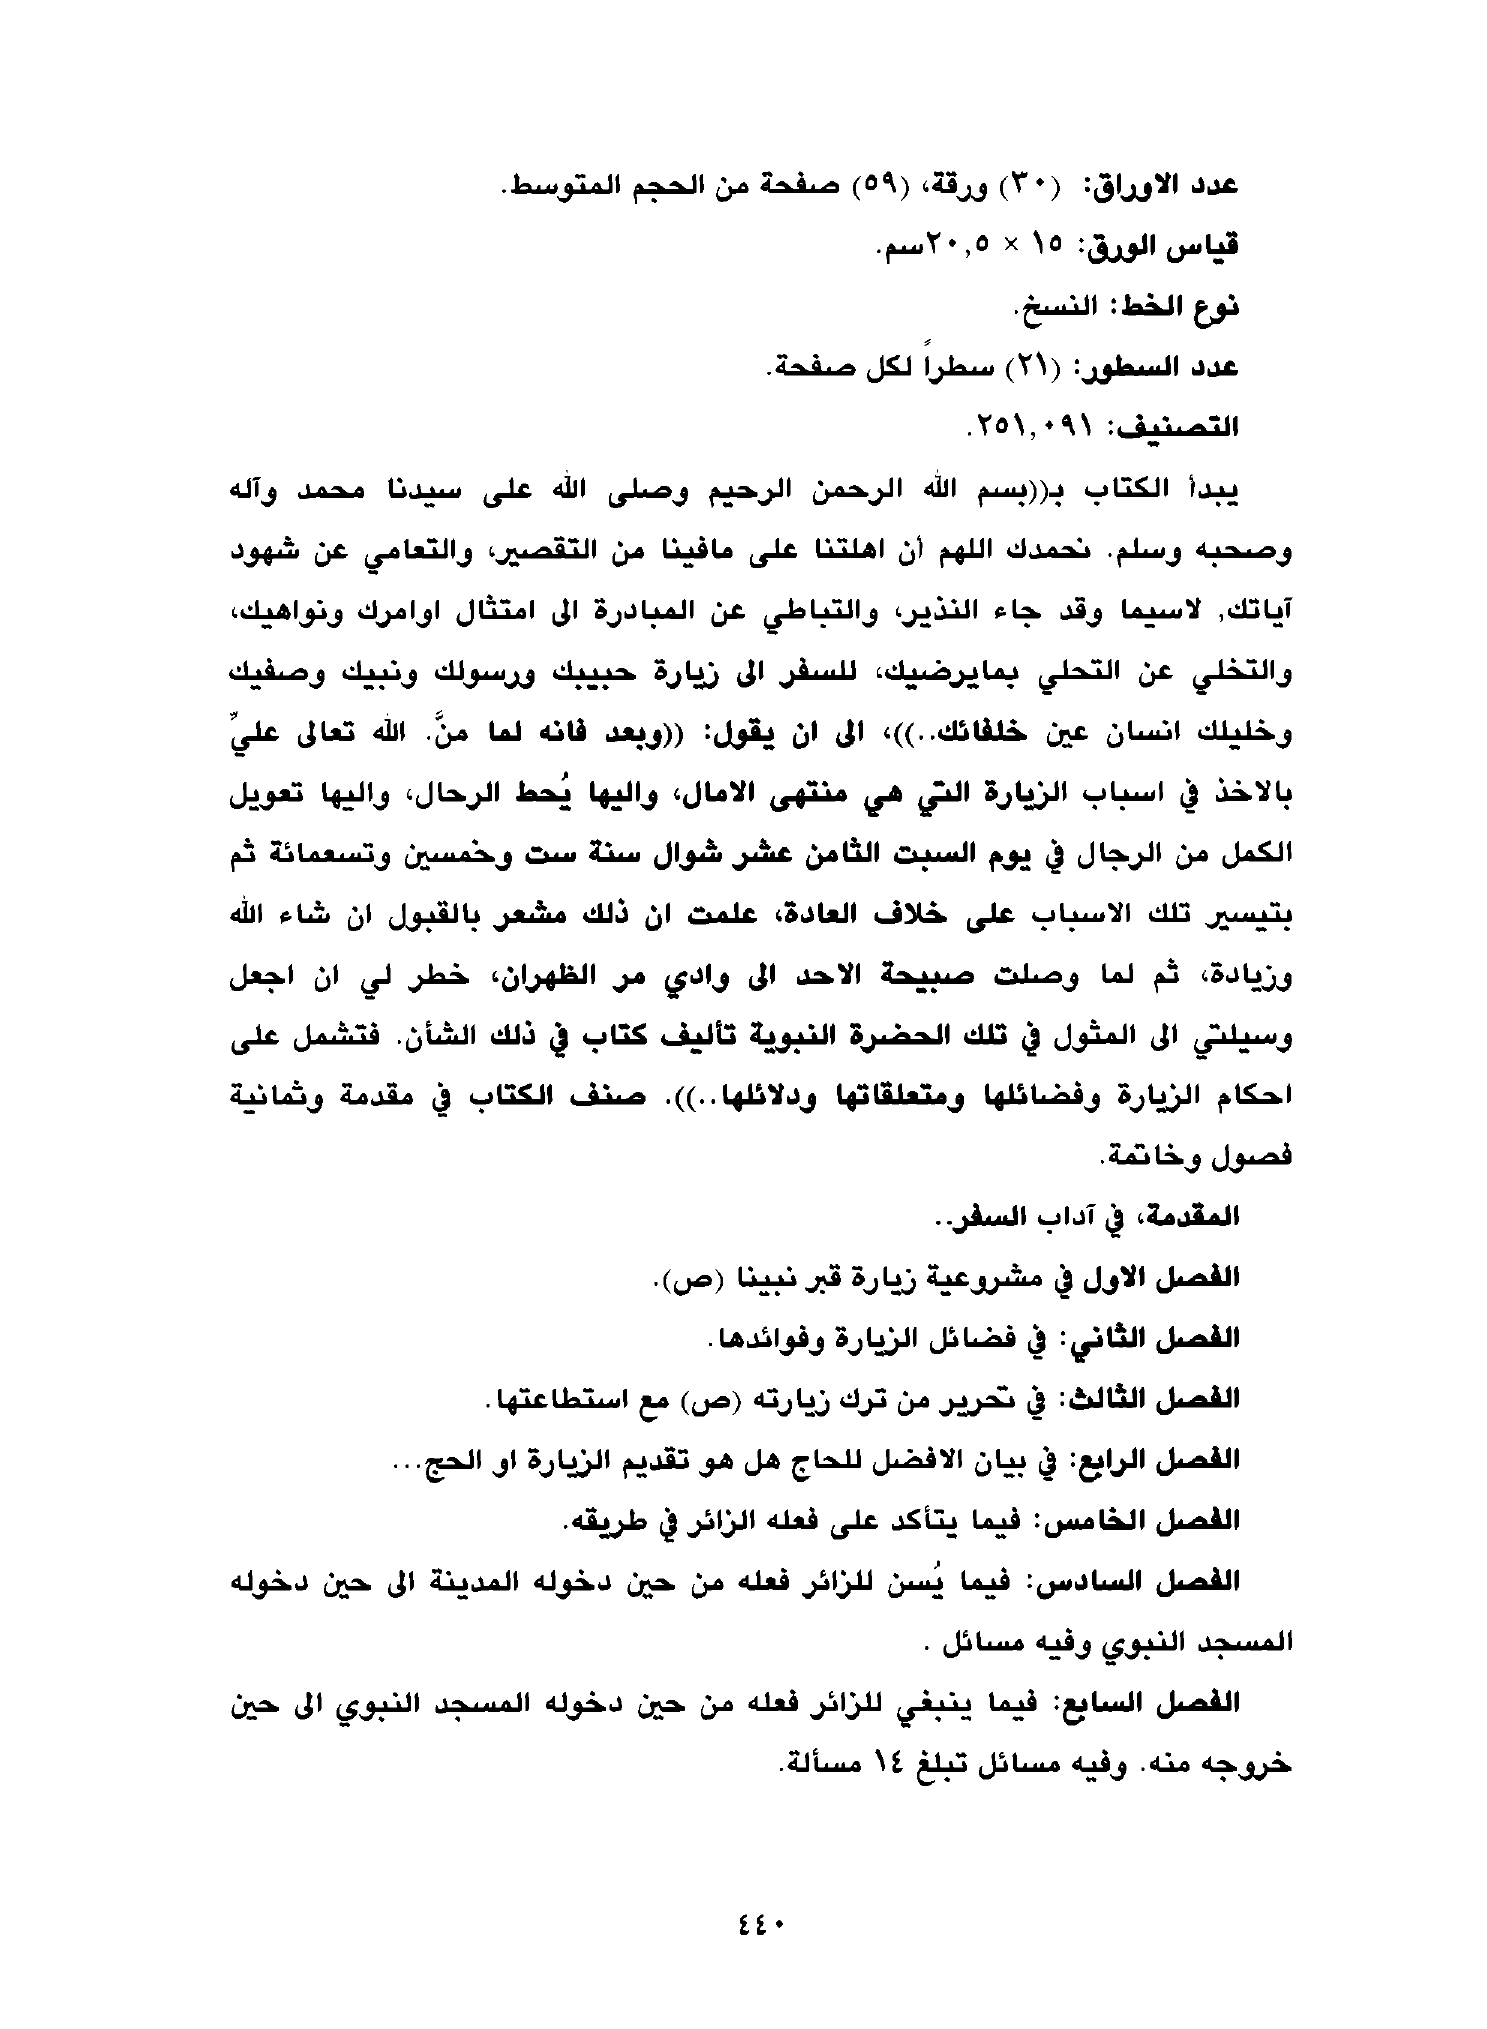 عدد الاوراق: (٣٠) ورقة، (٥٩) صفحة من الحجم المتوسط.
قياس الورق: ١٥ × ٢٠,٥سم.
نوع الخط: النسخ.
عدد السطور: (٢١) سطراً لكل صفحة.
التصنيف: ٢٥١,٠٩١.
يبدأ الكتاب بـ((بسم الله الرحمن الرحيم وصلى الله على سيدنا محمد وآله
وصحبه وسلم. نحمدك اللهم أن اهلتنا على مافينا من التقصير، والتعامي عن شهود
آياتك, لاسيما وقد جاء النذير، والتباطي عن المبادرة الى امتثال اوامرك ونواهيك،
والتخلي عن التحلي بمايرضيك، للسفر الى زيارة حبيبك ورسولك ونبيك وصفيك
وخليلك انسان عين خلفائك..))، الى ان يقول: ((وبعد فانه لما منَّ. الله تعالى عليِّ
بالاخذ في اسباب الزيارة التي هي منتهى الامال، واليها يُحط الرحال، واليها تعويل
الكمل من الرجال في يوم السبت الثامن عشر شوال سنة ست وخمسين وتسعمائة ثم
بتيسير تلك الاسباب على خلاف العادة، علمت ان ذلك مشعر بالقبول ان شاء الله
وزيادة، ثم لما وصلت صبيحة الاحد الى وادي مر الظهران، خطر لي ان اجعل
وسيلتي الى المثول في تلك الحضرة النبوية تأليف كتاب في ذلك الشأن. فتشمل على
احكام الزيارة وفضائلها ومتعلقاتها ودلائلها..)). صنف الكتاب في مقدمة وثمانية
فصول وخاتمة.
المقدمة، في آداب السفر..
الفصل الاول في مشروعية زيارة قبر نبينا (ص).
الفصل الثاني: في فضائل الزيارة وفوائدها.
الفصل الثالث: في تحرير من ترك زيارته (ص) مع استطاعتها.
الفصل الرابع: في بيان الافضل للحاج هل هو تقديم الزيارة او الحج...
الفصل الخامس: فيما يتأكد على فعله الزائر في طريقه.
الفصل السادس: فيما يُسن للزائر فعله من حين دخوله المدينة الى حين دخوله
المسجد النبوي وفيه مسائل .
الفصل السابع: فيما ينبغي للزائر فعله من حين دخوله المسجد النبوي الى حين
خروجه منه. وفيه مسائل تبلغ ١٤ مسألة.
٤٤٠